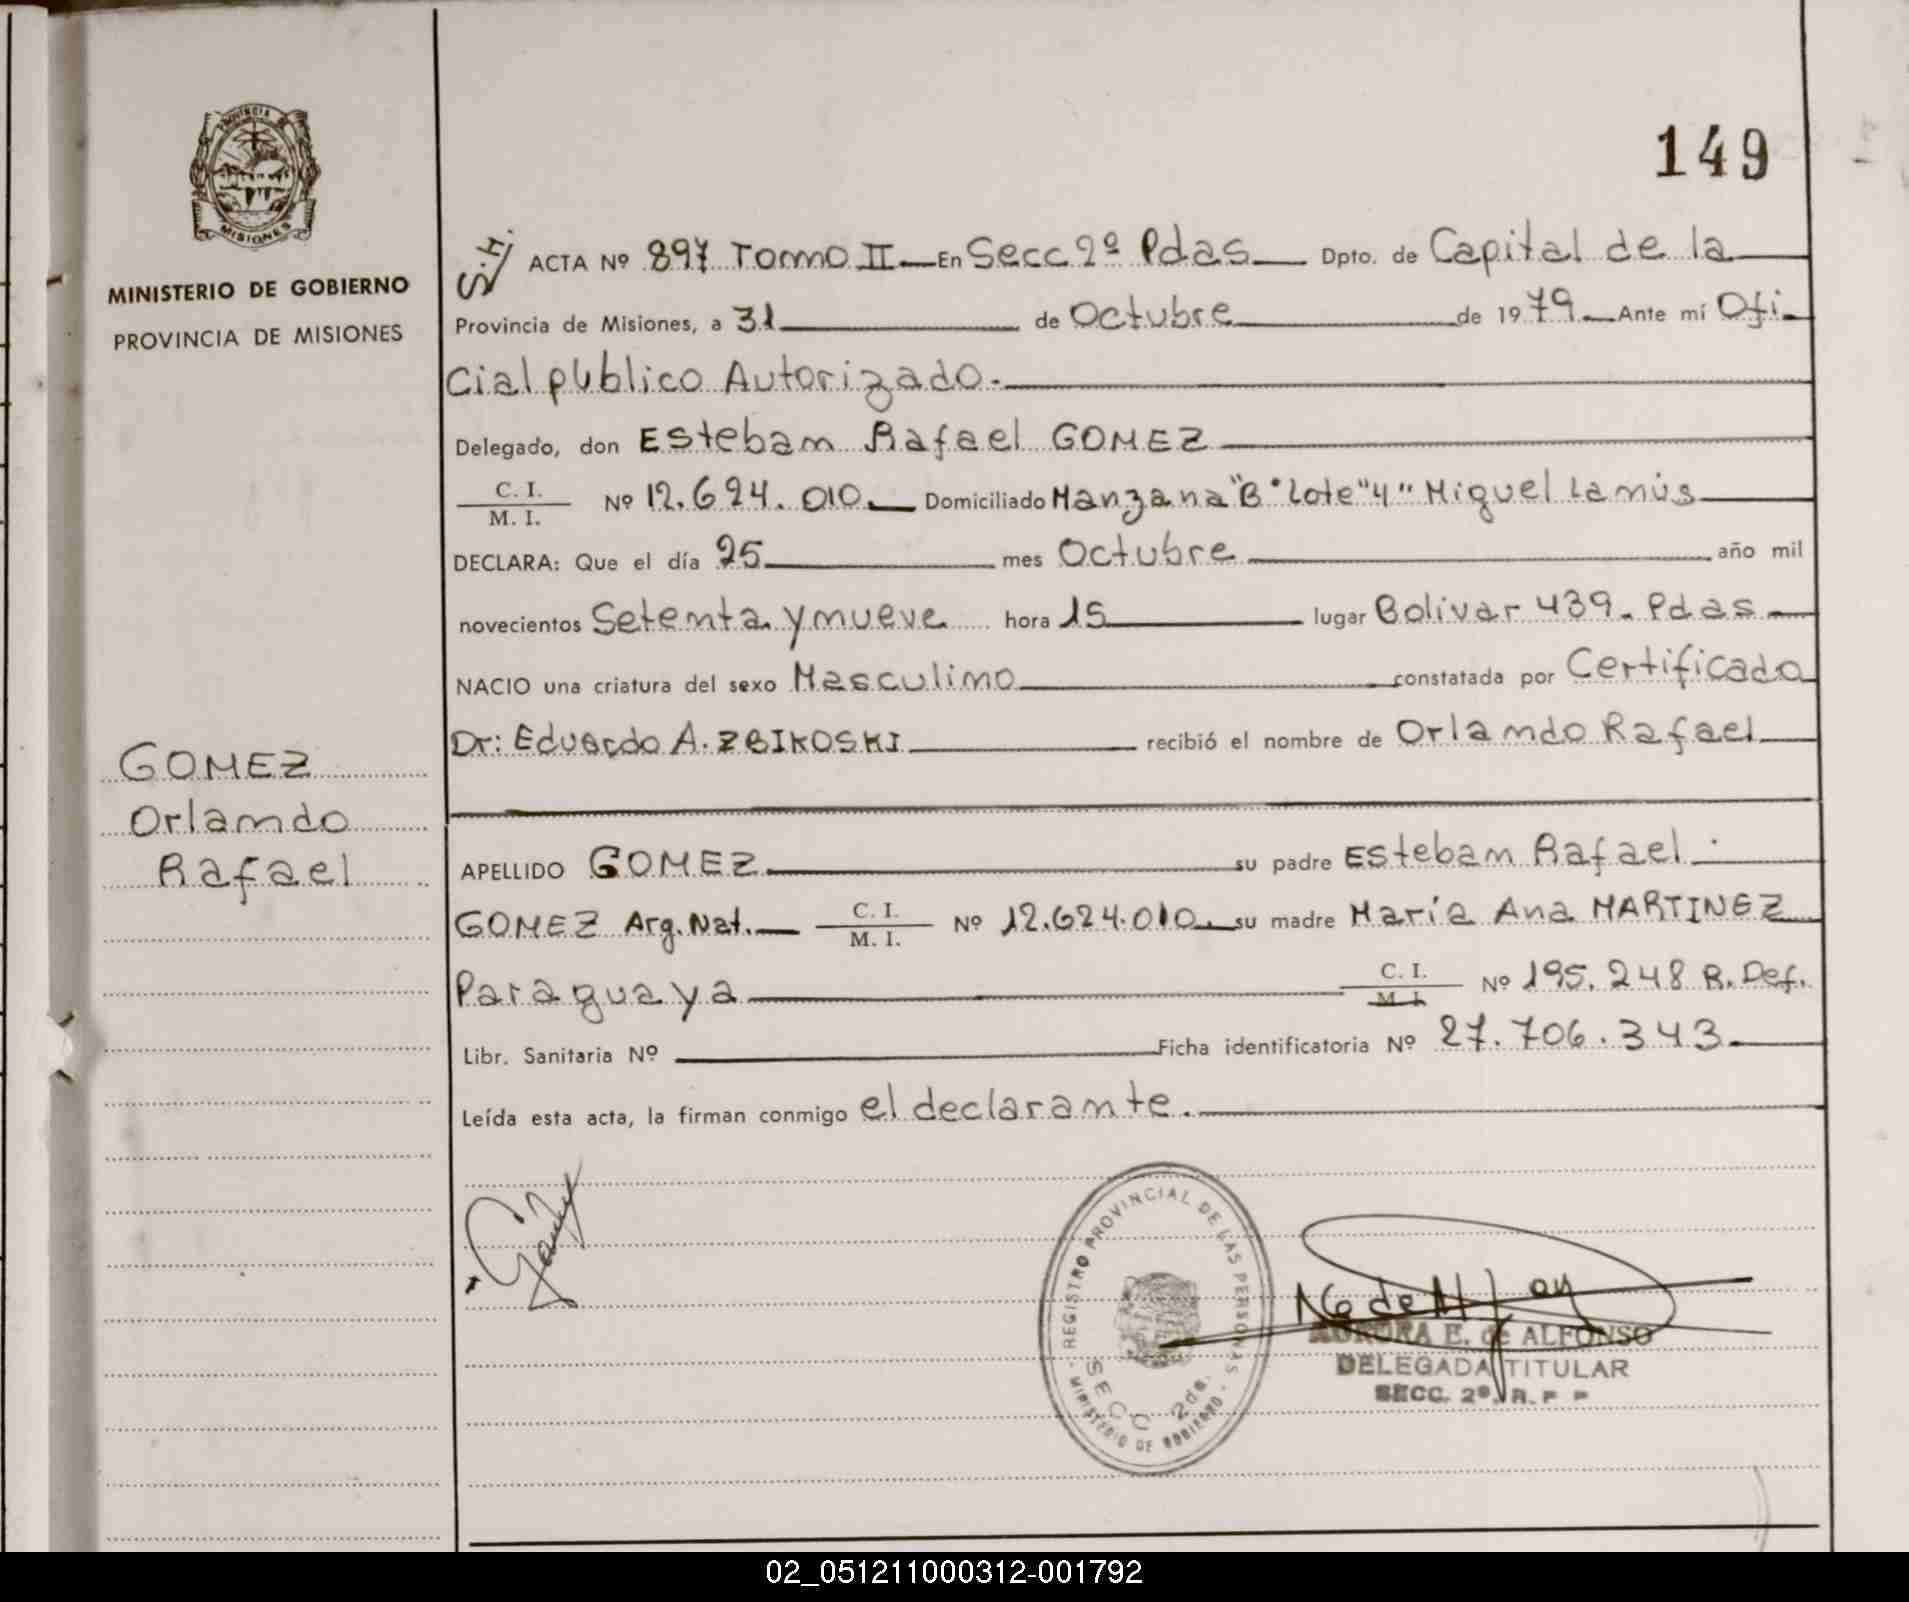 149
PROVINCIA DE MISIONES
MINISTERIO DE GOBIERNO
PROVINCIA DE MISIONES
GOMEZ
Orlando
Rafael
ACTA Nº 897 Tomo II — En Secc 2º Pdas — Dpto. de Capital de la
Provincia de Misiones, a 31 de Octubre de 1979. Ante mí Ofi
cial público Autorizado.
Delegado, don Esteban Rafael GOMEZ
C. I. / M. I. Nº 12.624.010 Domiciliado Manzana "B" Lote "4" Miguel Lanús
DECLARA: Que el día 25 mes Octubre año mil
novecientos Setenta y nueve hora 15 lugar Bolivar 439. Pdas
NACIO una criatura del sexo Masculino constatada por Certificado
Dr: Eduardo A. ZBIKOSKI recibió el nombre de Orlando Rafael
APELLIDO GOMEZ su padre Esteban Rafael
GOMEZ Arg. Nat. C. I. / M. I. Nº 12.624.010 su madre María Ana MARTINEZ
Paraguaya C. I. / M. I. Nº 195.248 R. Def.
Libr. Sanitaria Nº Ficha identificatoria Nº 27.706.343
Leída esta acta, la firman conmigo el declarante.
REGISTRO PROVINCIAL DE LAS PERSONAS
SECC 2da.
MINISTERIO DE GOBIERNO
AURORA E. de ALFONSO
DELEGADA TITULAR
SECC. 2ª. R. P. P
02_051211000312-001792